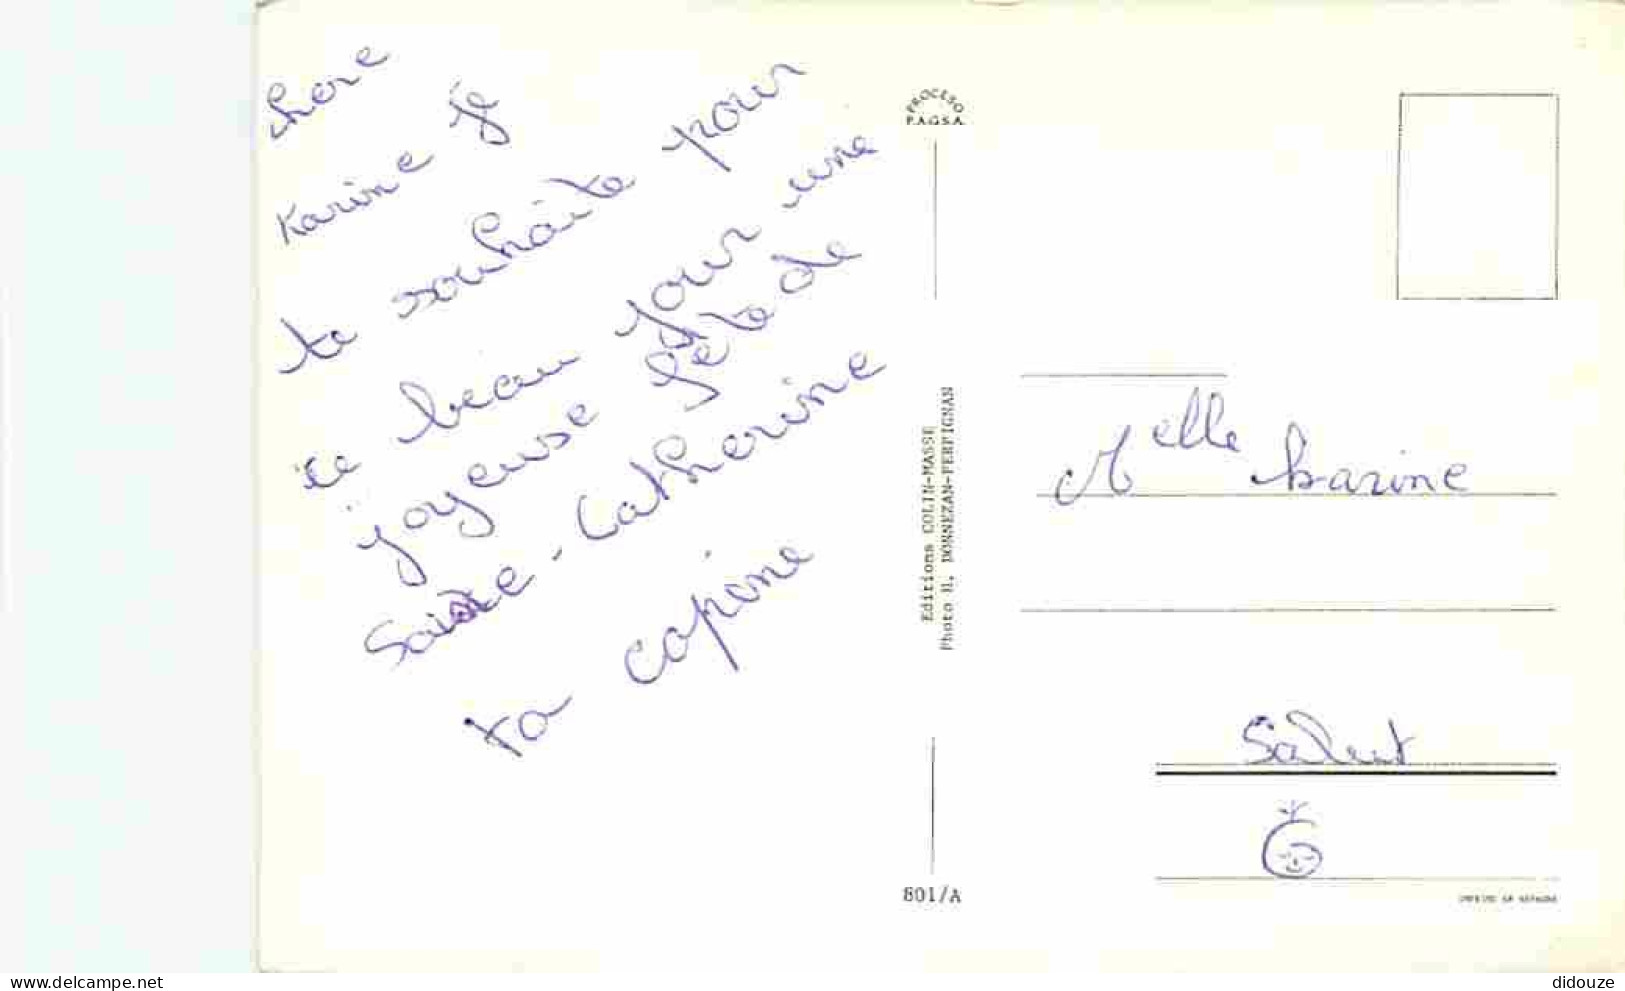 chere
Karine je
te souhaite pour
ce beau jour une
joyeuse fete de
Sainte-Catherine
ta copine
PROCESO
P.A.G.S.A.
Editions COLIN-MASSE
Photo H. DONNEZAN-PERPIGNAN
801/A
Melle Karine
Salut
delcampe.net
didouze